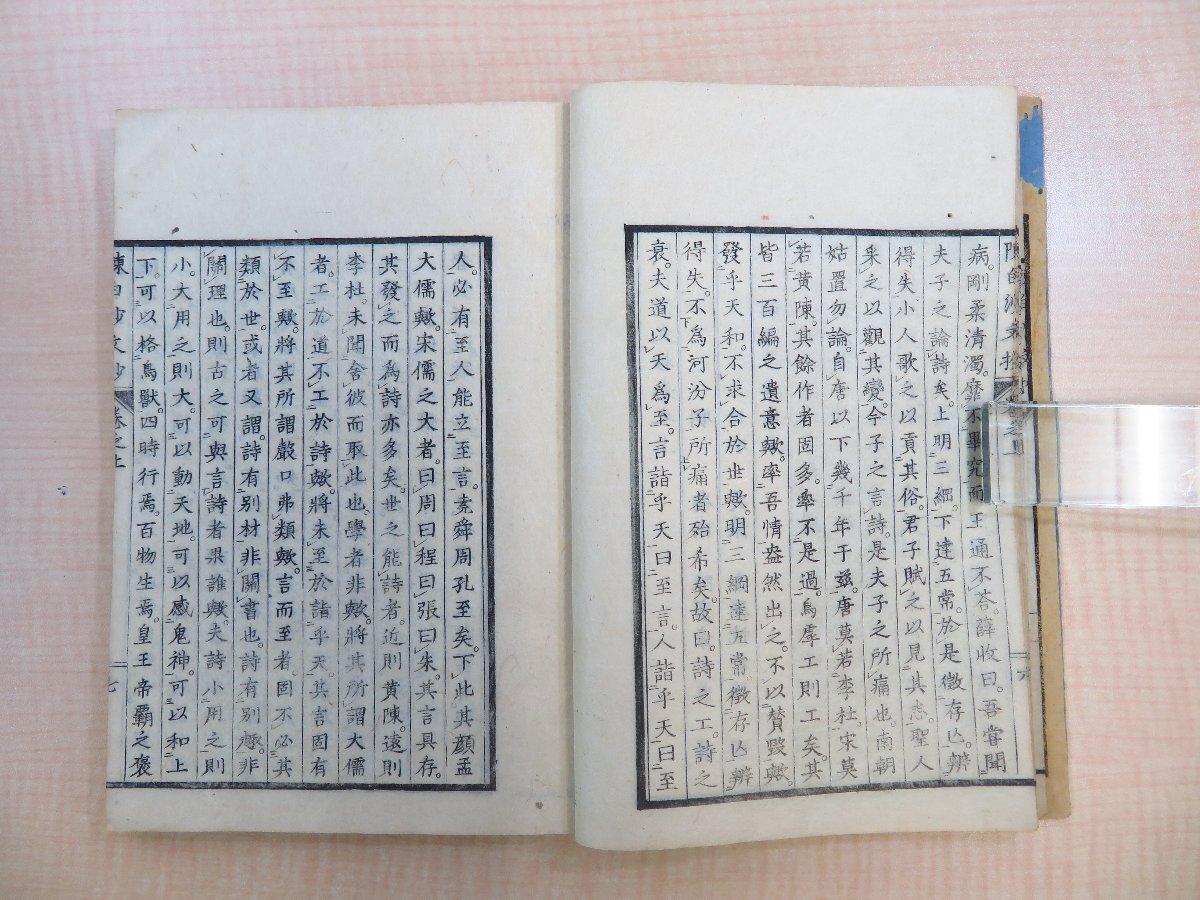 病。剛柔清濁。靡不畢究。而王通不答。薛收曰。吾嘗聞
夫子之論詩矣。上明三綱。下達五常。於是徵存亡。辨
得失。小人歌之以貢其俗。君子賦之以見其志。聖人
采之以觀其變。今子之言詩。是夫子之所痛也。南朝
姑置勿論。自唐以下幾千年于茲。唐莫若李杜。宋莫
若黃陳。其餘作者固多。率不是過。烏虖工則工矣。其
皆三百編之遺意歟。率吾情盎然出之。不以贊毀歟。
發乎天和。不求合於世歟。明三綱達五常徵存亡辨
得失。不為河汾子所痛者殆希矣。故曰。詩之工。詩之
衰。夫道以天為至。言詣乎天曰至言。人詣乎天曰至
人。必有至人能立至言。堯舜周孔至矣。下此其顏孟
大儒歟。宋儒之大者。曰周曰程曰張曰朱。其言具存。
其發之而為詩亦多矣。世之能詩者。近則黃陳。遠則
李杜。未聞舍彼而取此也。學者非歟。將其所謂大儒
者。工於道。不工於詩歟。將未至於詣乎天。其言固有
不至歟。將其所謂聲口弗類歟。言而至者。固不必其
類於世。或者又謂。詩有別材。非關書也。詩有別趣。非
關理也。則古之可與言詩者果誰歟。夫詩小用之則
小。大用之則大。可以動天地。可以感鬼神。可以和上
下。可以格鳥獸。四時行焉。百物生焉。皇王帝霸之褒
陳白沙文抄 卷之上 七